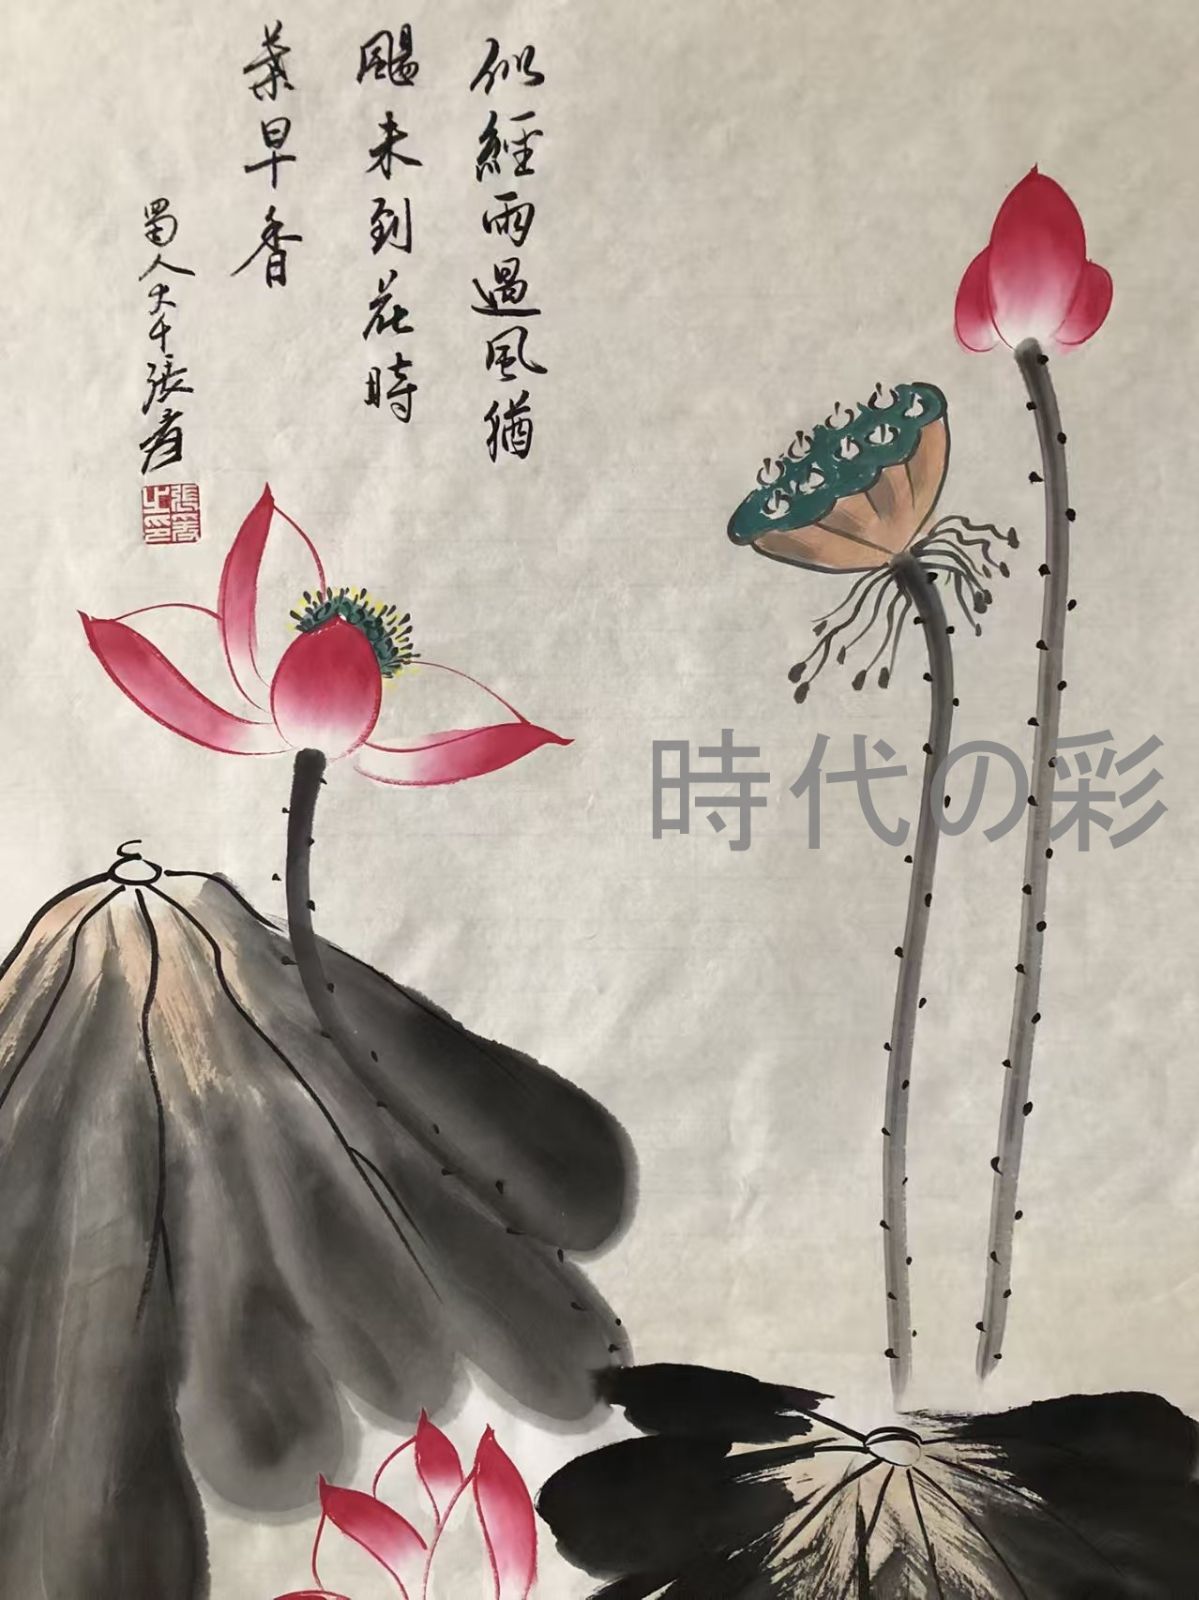 似經雨過風猶
颺未到花時
葉早香
蜀人大千張爰
張爰之印
時代の彩